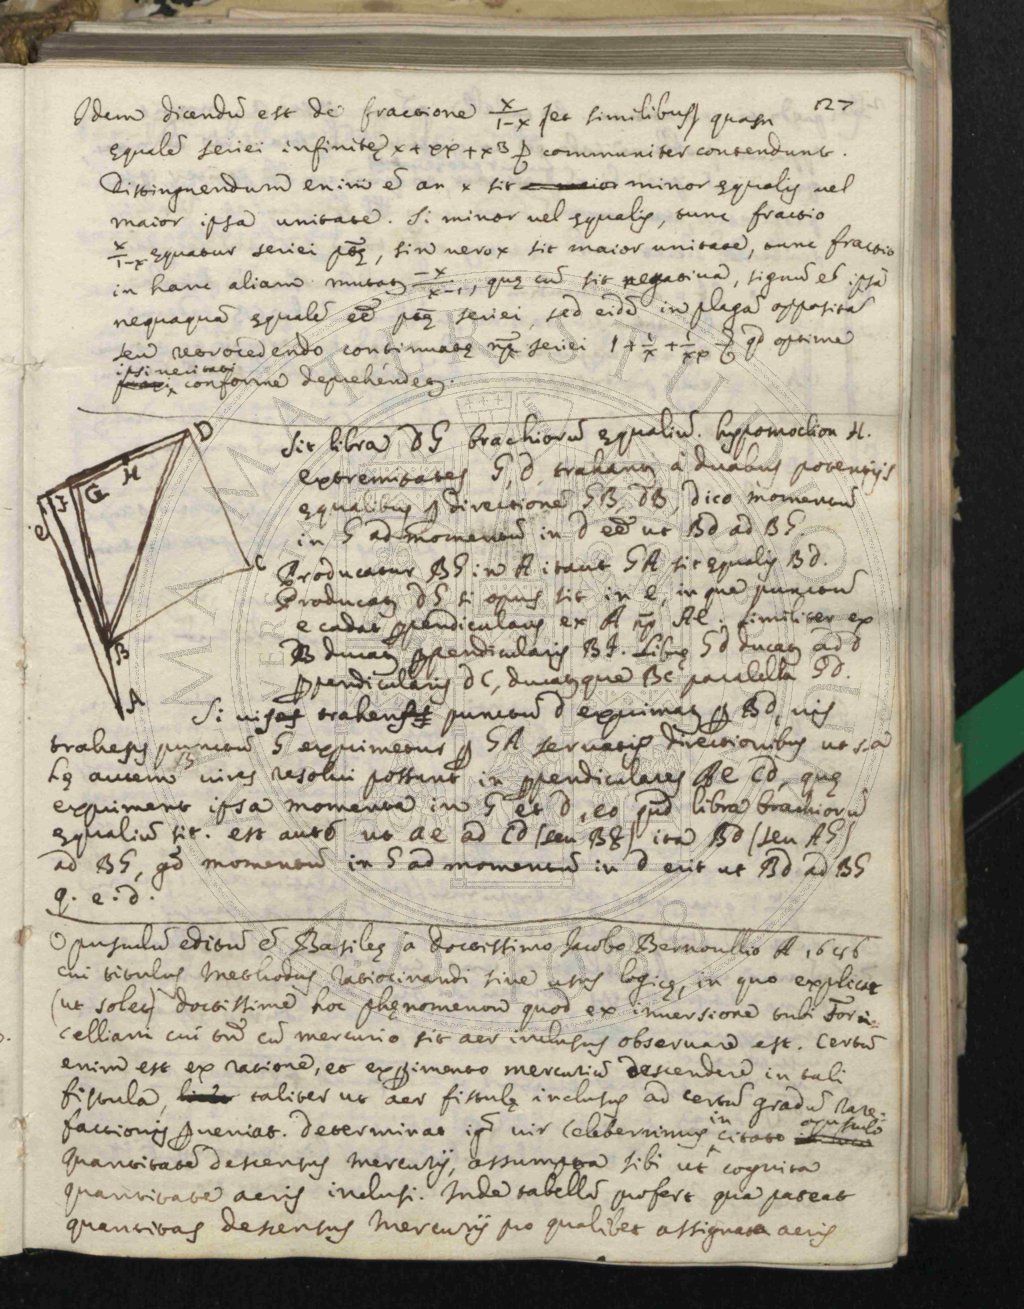 127
Idem dicendū est de fractione x/1-x [et similibus] quasn
ęqualē seriei infinitę x + xx + x3 & communiter contendunt.
Distinguendum enim ē an x sit minor ęqualis vel
maior ipsa unitate. Si minor vel ęqualis, tunc fractio
x/1-x ęquatur seriei ptę, sin vero x sit maior unitate, tunc fractio
in hanc aliam mutatʒ -x/x-1, quę cū sit negativa, signū ē ipsā
nequaquā ęqualē eē ptę seriei, sed eidē in plagā oppositā
seu retrocedendo continuatę npe seriei 1 + 1/x + 1/xx & qd optime
ipsi veritati
conforme deprehendetʒ.
D
H
G
F
e
C
B
A
Sit libra DG brachiorū ęqualiū. hypomoclion H.
extremitates G, D, trahantʒ a duabus potentijs
ęqualibus p directione GB, DB, dico momentū
in G ad momentū in D eē ut BD ad BG.
Producatur BG in A itaut GA sit ęqualis BD.
Producatʒ DG si opus sit in e, in que punctū
e cadat ppendicularis ex A npe Ae. similiter ex
B ducatʒ ppendicularis BF. Librę GD ducatʒ ad D
ppendicularis DC, ducatʒque BC paralella GD.
Si vis trahens punctū D exprimatʒ p BD, vis
trahens punctū G exprimetur p GA servatis directionibus ut s.a
hę autem vires resolvi possunt in ppendiculares Ae CD, quę
expriment ipsa momenta in G et D, eo quod libra brachiorū
ęqualiū sit. est autē ut Ae ad CD (seu BF) ita BD (seu AG)
ad BG, go momentū in G ad momentū in D erit ut BD ad BG
q. e. d.
Opusculū editū ē Basileę a doctissimo Jacobo Bernoullio A 1686
cui titulus Methodus ratiocinandi sine usus logicę, in quo explicat
(ut solet) doctissime hoc phęnomenon quod ex inversione tubi Torri-
celliani cui tū cū mercurio sit aer inclusus observare est. Certū
enim est ex ratione, et expimento mercuriū descendere in tali
fistula, taliter ut aer fistulę inclusus ad certū gradū rare-
factionis pveniat. Determinat igr vir Celeberrimus in citato opusculo
quantitatē descensus mercurij, assumpta sibi ut cognita
quantitate aeris inclusi. Inde tabellā profert qua pateat
quantitas descensus Mercurij pro qualibet assignata aeris